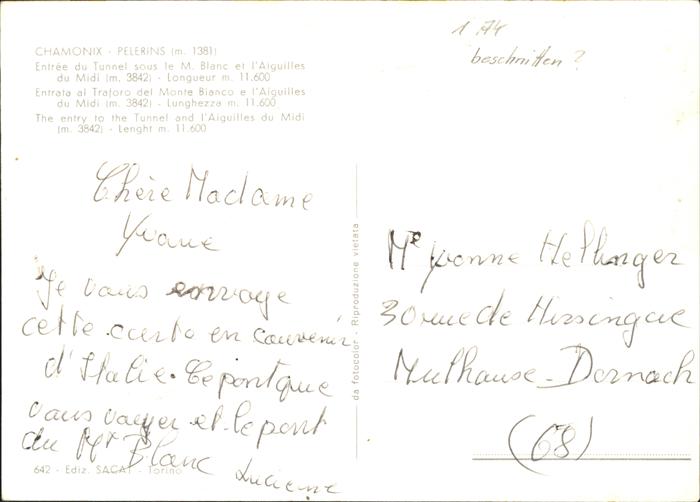 CHAMONIX - PELERINS (m. 1381)
Entrée du Tunnel sous le M. Blanc et l'Aiguilles
du Midi (m. 3842) - Longueur m. 11.600
Entrata al Traforo del Monte Bianco e l'Aiguilles
du Midi (m. 3842) - Lunghezza m. 11.600
The entry to the Tunnel and l'Aiguilles du Midi
(m. 3842) - Lenght m. 11.600
1,74
beschnitten?
Chère Madame
Yvone
Je vous envoye
cette carte en souvenir
d'Italie. Le pont que
vous voyer et le pont
du Mt Blanc
Lucienne
642 - Ediz. SACAT - Torino
da fotocolor - Riproduzione vietata
Me Yvonne Hellinger
30 rue de Hirsingue
Mulhouse-Dornach
(68)